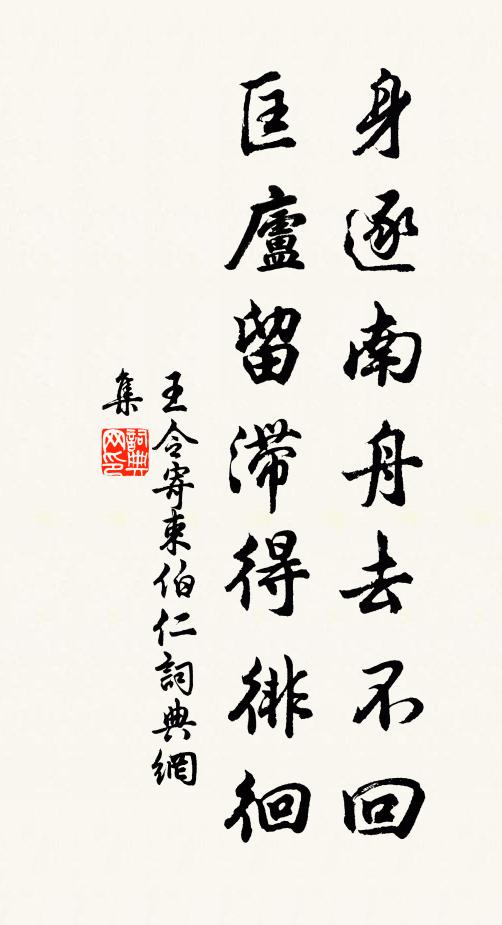 身逐南舟去不回
匡廬留滯得徘徊
王令寄束伯仁詞典網
集
詞典
网印